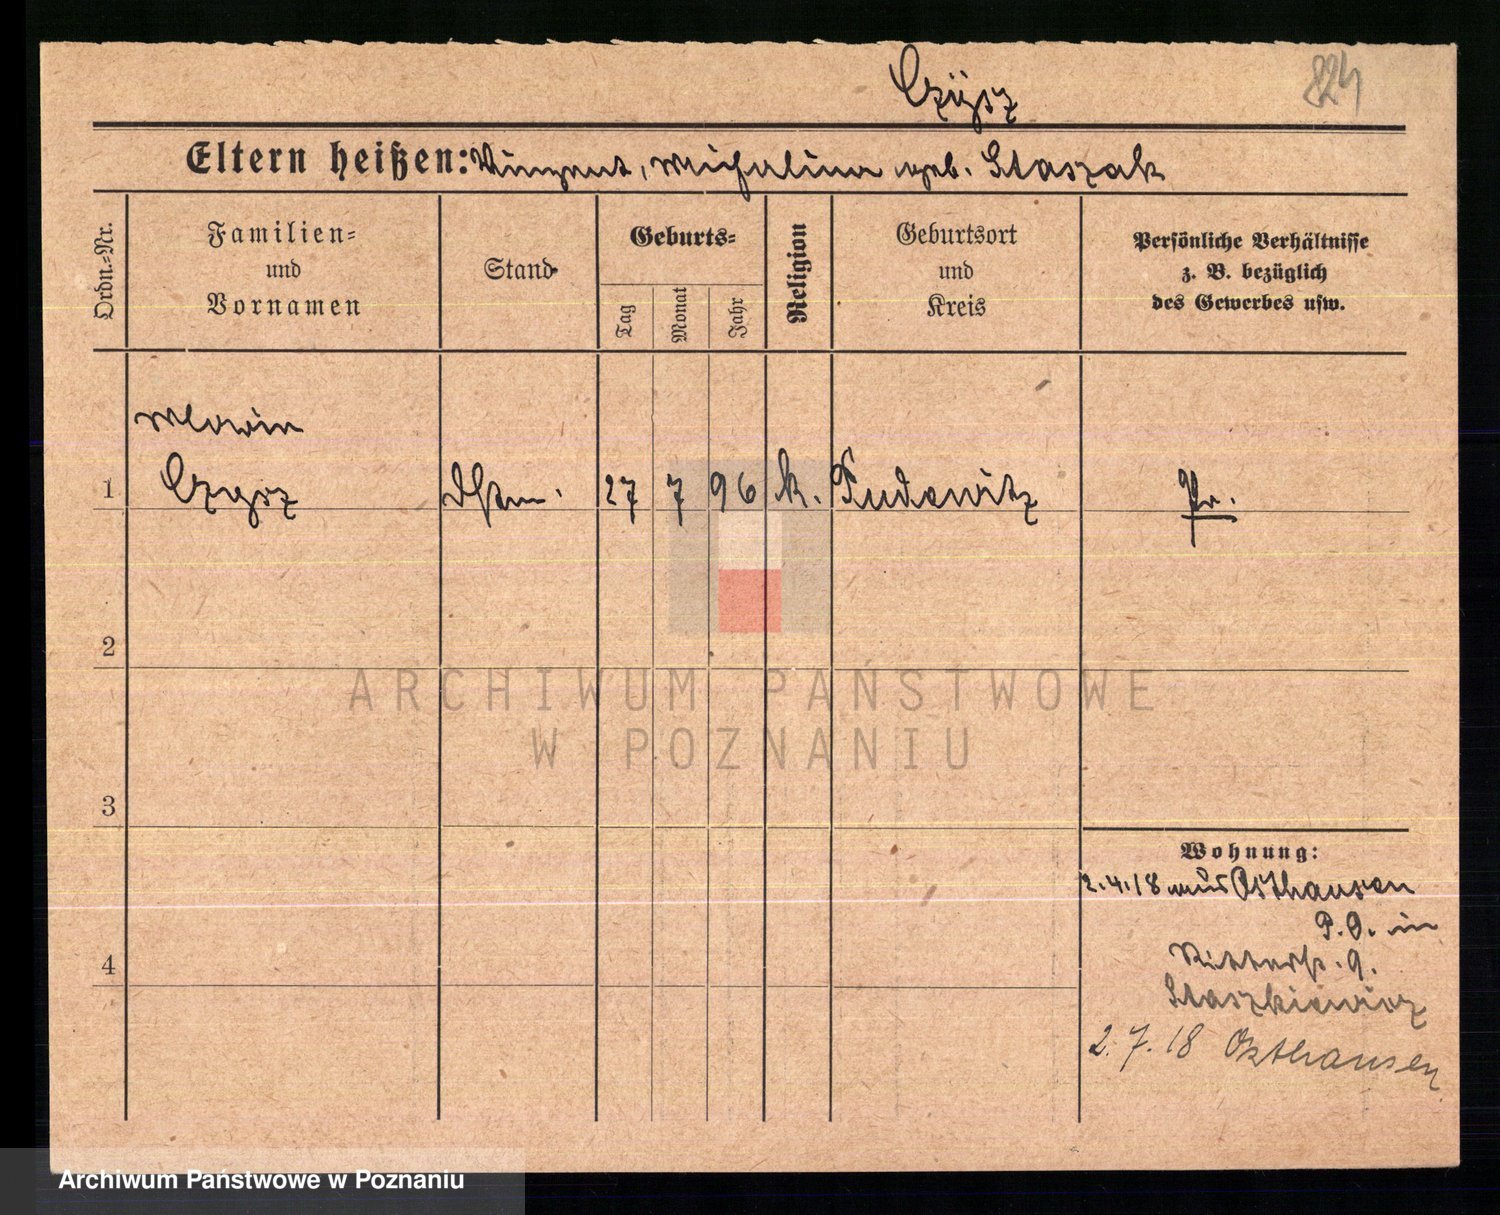 Czÿsz 824
Eltern heißen: Vinzent, Michalina geb. Staszak
Ordn.-Nr.
Familien-
und
Vornamen
Stand
Geburts-
Tag
Monat
Jahr
Religion
Geburtsort
und
Kreis
Persönliche Verhältnisse
z. B. bezüglich
des Gewerbes usw.
Maria
1 Czysz Dstm. 27 7 96 k. Pudewitz Pr.
2
3
4
Wohnung:
2.4.18 aus Osthausen
P.O. in
Ritterstr. 9.
Staszkiewicz
2.7.18 Osthausen
ARCHIWUM PAŃSTWOWE
W POZNANIU
Archiwum Państwowe w Poznaniu